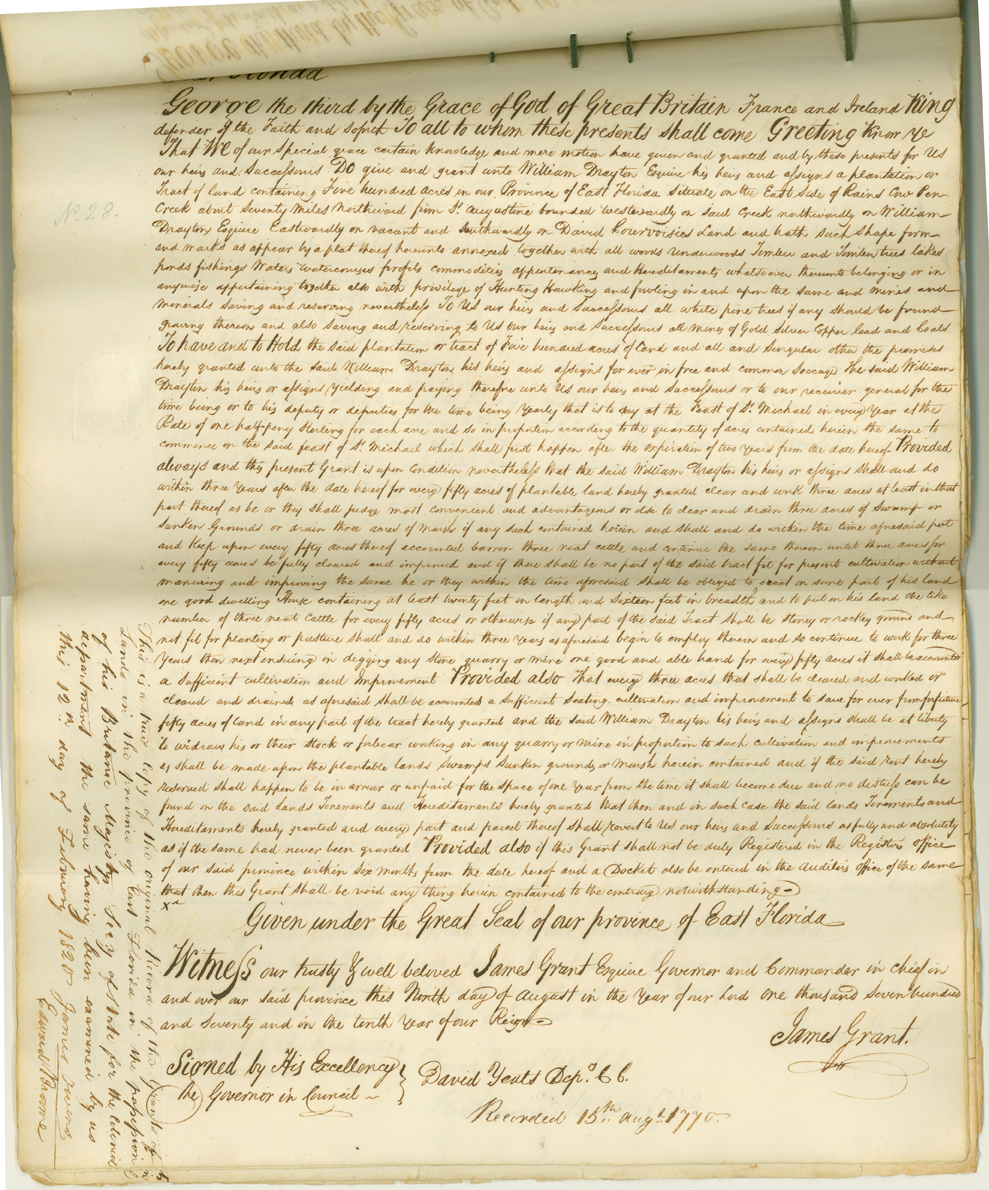 East Florida
George the third by the Grace of God of Great Britain France and Ireland King
defender of the Faith and soforth To all to whom these presents shall come Greeting Know ye
That We of our Special grace certain knowledge and mere motion have given and granted and by these presents for Us
our heirs and Successours DO give and grant unto William Drayton Esquire his heirs and assigns a plantation or
Tract of land containing Five hundred acres in our Province of East Florida Situate on the East Side of Rains Cow Pen
Creek about Seventy Miles Northward from St. Augustine bounded Westwardly on said Creek northwardly on William
Drayton Esquire Eastwardly on vacant and Southwardly on David Courvoisies Land and hath such shape form
and marks as appear by a plat thereof hereunto annexed together with all woods Underwoods Timber and Timber trees lakes
ponds fishings Waters watercourses profits commodities appurtenances and Hereditaments whatsoever thereunto belonging or in
anywise appertaining together also with privilege of Hunting Hawking and fowling in and upon the same and mines and
minerals Saving and reserving nevertheless To Us our heirs and Successours all white pine trees if any should be found
growing thereon and also Saving and reserving to Us our heirs and Successours all mines of Gold Silver Copper lead and Coals
To have and to Hold the said plantation or tract of Five hundred acres of Land and all and Singular other the premises
hereby granted unto the said William Drayton his heirs and assigns for ever in free and common Soccage The said William
Drayton his heirs or assigns yielding and paying therefore unto Us our heirs and Successours or to our receiver general for the
time being or to his deputy or deputies for the time being Yearly that is to say at the Feast of St. Michael in every Year at the
Rate of one half-peny Sterling for each acre and so in proportion according to the quantity of acres contained herein the same to
commence on the said feast of St. Michael which shall first happen after the expiration of two Years from the date hereof Provided
always and this present Grant is upon Condition nevertheless that the said William Drayton his heirs or assigns Shall and do
within three Years after the date hereof for every fifty acres of plantable land hereby granted clear and work three acres at least in that
part thereof as he or they shall judge most convenient and advantageous or else to clear and drain three acres of Swamp or
Sunken Grounds or drain three acres of Marsh if any Such contained herein and Shall and do within the time aforesaid put
and Keep upon every fifty acres thereof accounted barren three neat cattle and continue the same thereon until three acres for
every fifty acres be fully cleared and improved and if there shall be no part of the said tract fit for present cultivation without
manuring and improving the same he or they within the time aforesaid shall be obliged to erect on some part of his land
one good dwelling House containing at least twenty feet in length and Sixteen feet in breadth and to put on his land the like
number of three neat Cattle for every fifty acres or otherwise if any part of the said Tract shall be Stoney or rockey ground and
not fit for planting or pasture shall and do within three Years as aforesaid begin to employ thereon and so continue to work for three
Years then next ensuing in digging any stone quarry or mine one good and able hand for every fifty acres it shall be accounted
a Sufficient cultivation and improvement Provided also That every three acres that shall be cleared and worked or
cleared and drained as aforesaid Shall be accounted a Sufficient Seating cultivation and improvement to save for ever from forfeiture
fifty acres of land in any part of the tract hereby granted and the said William Drayton his heirs and assigns shall be at liberty
to widraw his or their Stock or forbear working in any quarry or Mine in proportion to such cultivation and improvements
as shall be made upon the plantable lands Swamps Sunkin grounds or Marsh herein contained and if the said Rent hereby
reserved Shall happen to be in arrear or unpaid for the Space of one Year from the time it shall become due and no distress can be
found on the said Lands Tenements and Hereditaments hereby granted that then and in such case the said Lands Tenements and
Hereditaments hereby granted and every part and parcel thereof shall revert to Us our heirs and Successours as fully and absolutely
as if the same had never been granted Provided also if this Grant shall not be duly Registered in the Registers office
of our said province within Six Months from the date hereof and a Docket also be entered in the Auditors Office of the same
that then this Grant shall be void any thing herein contained to the contrary notwithstanding
xd
Given under the Great Seal of our province of East Florida
Witness our trusty & well beloved James Grant Esquire Governor and Commander in chief in
and over our said province this Ninth day of August in the Year of our Lord one thousand Seven hundred
and Seventy and in the tenth Year of our Reign
James Grant.
Signed by His Excellency
the Governor in Council
David Yeats Depo. C C.
Recorded 15th. Augt. 1770
No. 28.
This is a true Copy of the original Record of the Grants of
Lands in the Province of East Florida in the possession
of his Britanic Majestys Secy of State for the Colonial
department the same having been examined by us
this 12th. day of February 1820
James
Edward Broome